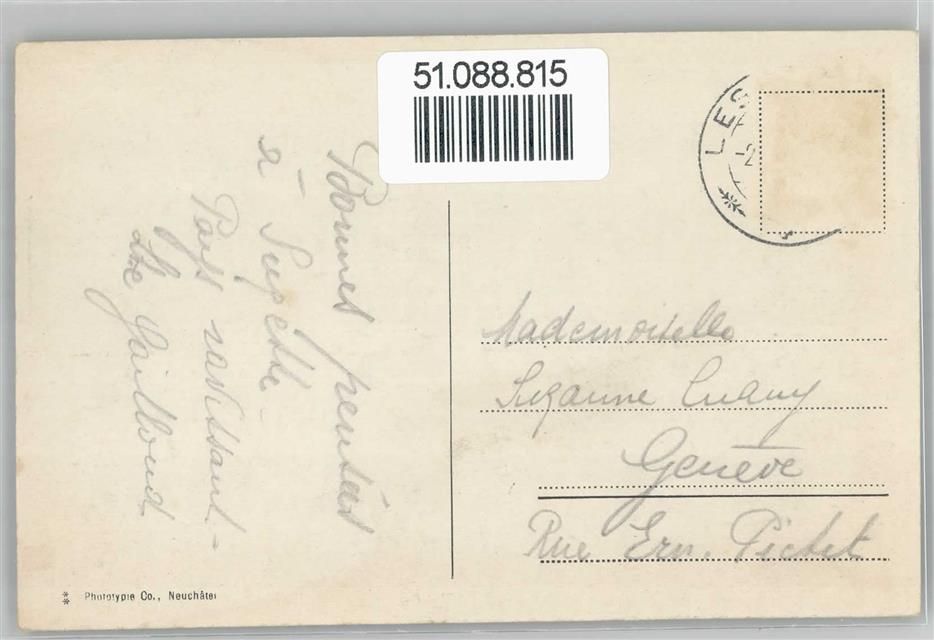 51.088.815
LES
-2
Bonnes pensées
à Suzette.
Pays ravissant.
Gaillard
Mademoiselle
Suzanne
Genève
Rue Ern. Pictet
** Phototypie Co., Neuchâtel